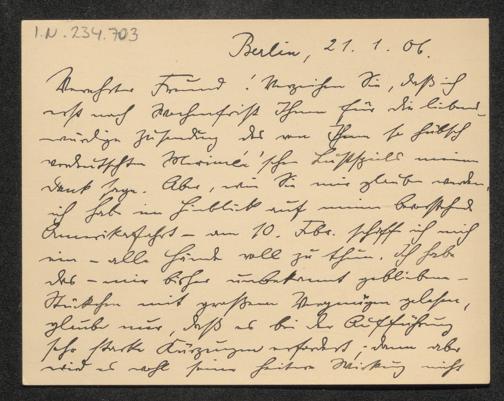 I.N. 234.703
Berlin, 21. 1. 06.
Verehrter Freund! Verzeihen Sie, daß ich
erst nach Wochenfrist Ihnen für die liebens-
würdige Zusendung des von Ihnen so hübsch
verdeutschten Merimée'schen Lustspiels meinen
Dank sage. Aber, wie Sie mir glauben werden,
ich habe im Hinblick auf meine bevorstehende
Amerikafahrt – am 10. Febr. schiff ich mich
ein – alle Hände voll zu thun. Ich habe
das – mir bisher unbekannt gebliebene –
Stückchen mit großem Vergnügen gelesen,
glaube nur, daß es bei der Aufführung
sehr starke Kürzungen erfordert; dann aber
wird es wohl seine heitere Wirkung nicht